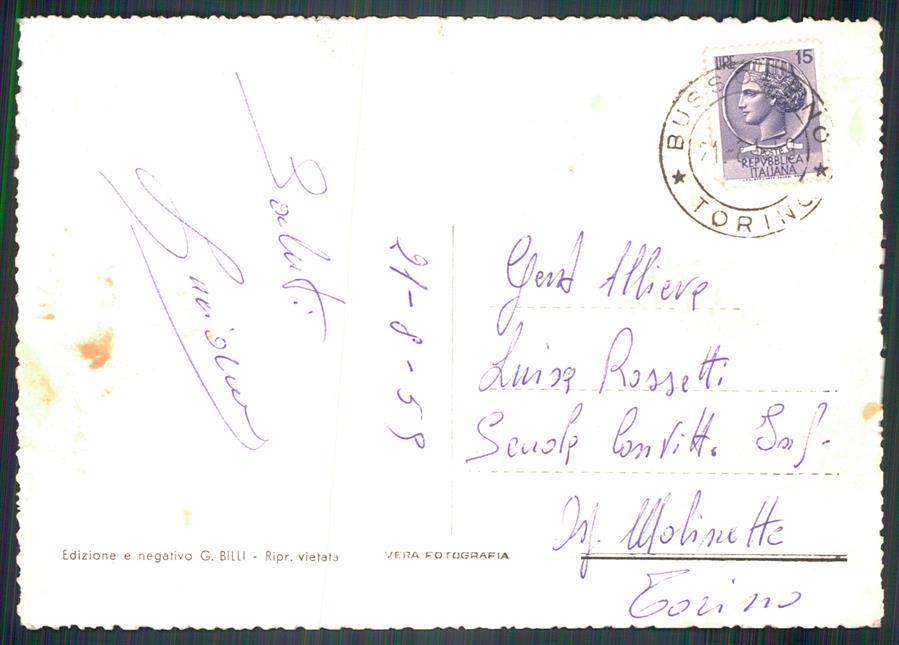 Saluti
21-8-59
LIRE 15
POSTE
REPVBBLICA
ITALIANA
BUSSOLENO
TORINO
Gent Allieva
Luisa Rossetti
Scuola Convitto Inf.
Molinette
Torino
Edizione e negativo G. BILLI - Ripr. vietata
VERA FOTOGRAFIA